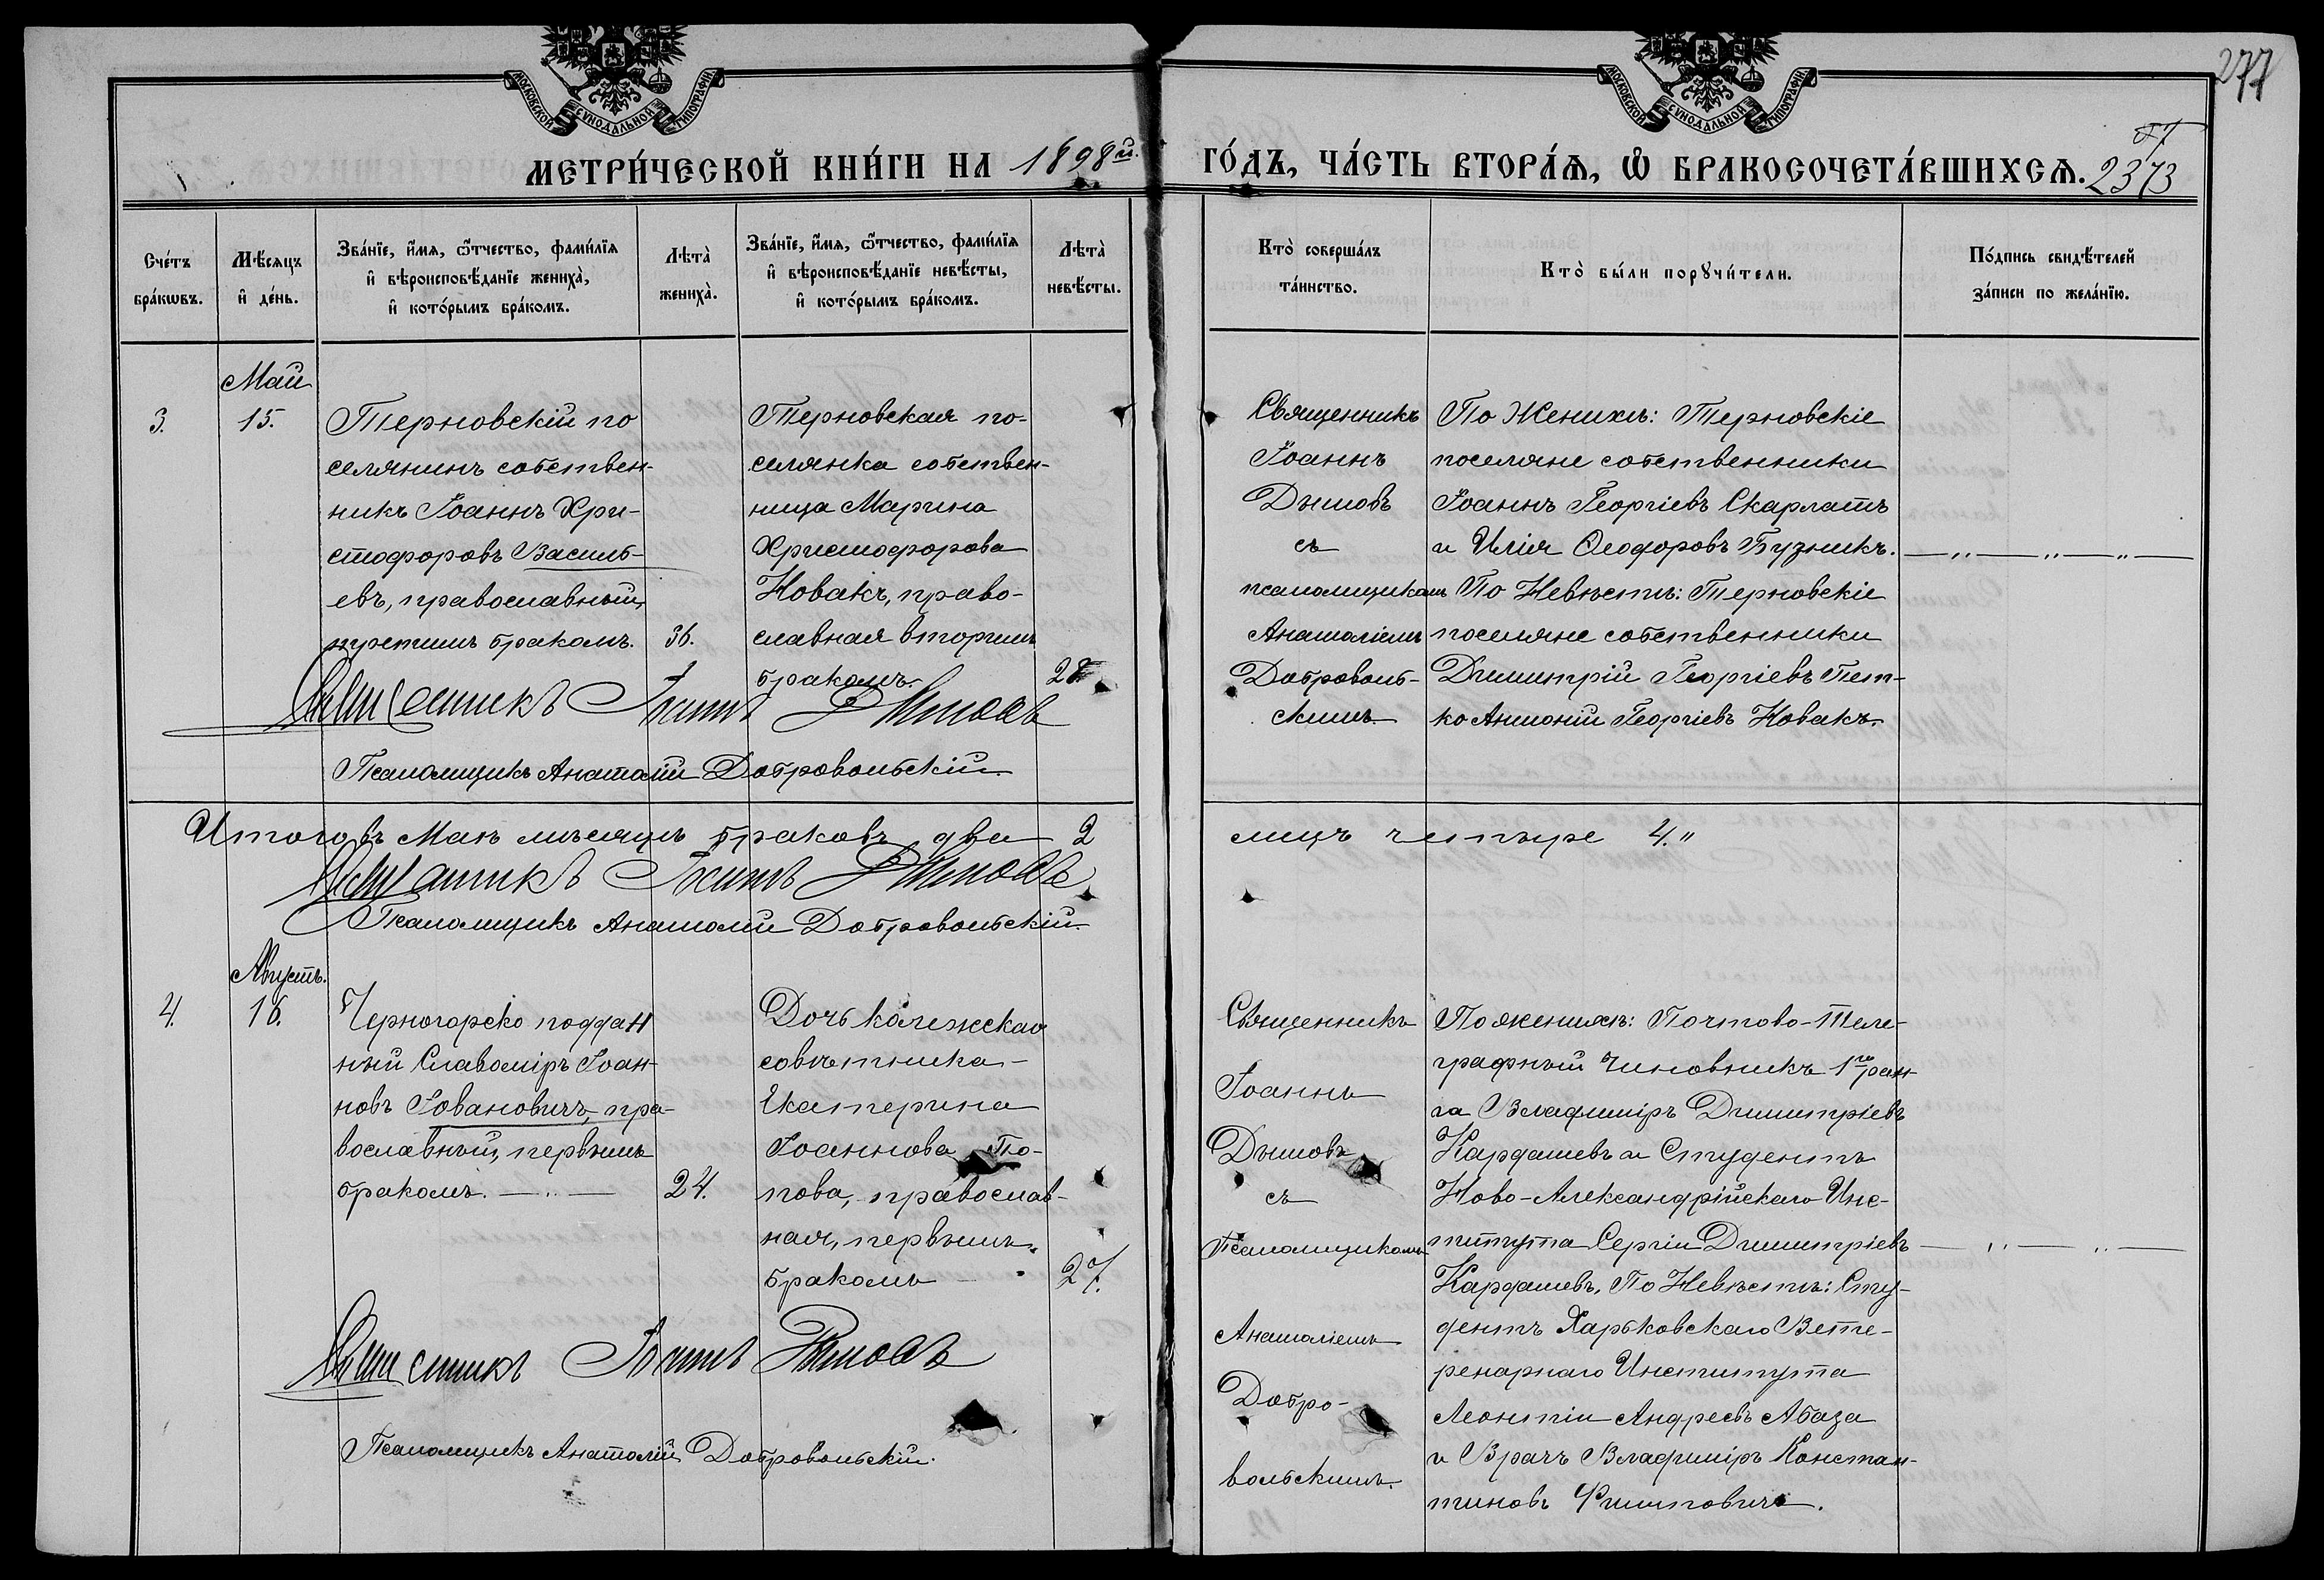 277
МОСКОВСКОЙ СѴНОДАЛЬНОЙ ТИПОГРАФІИ
МОСКОВСКОЙ СѴНОДАЛЬНОЙ ТИПОГРАФІИ
МЕТРИ́ЧЕСКОЙ КНИ́ГИ НА 1898й. ГО́ДЪ, ЧА́СТЬ ВТОРА́Ѧ, Ѽ БРАКОСОЧЕТА́ВШИХСѦ.
2373
Сче́тъ бра́кѡвъ.
Мѣ́сѧцъ и҆ де́нь.
Зва́нїе, и҆́мѧ, ѻ҆́тчество, фами́лїѧ
и҆ вѣроисповѣ́данїе жениха̀,
и҆ кото́рымъ бра́комъ.
Лѣта̀ жениха̀.
Зва́нїе, и҆́мѧ, ѻ҆́тчество, фами́лїѧ
и҆ вѣроисповѣ́данїе невѣ́сты,
и҆ кото́рымъ бра́комъ.
Лѣта̀ невѣ́сты.
Кто̀ соверша́лъ
та́инство.
Кто̀ бы́ли порꙋчи́тели.
По́дпись свидѣ́телей
за́писи по жела́нїю.
Май
3.
15.
Терновскій по
селянинъ собствен-
никъ Іоаннъ Хри-
стофоровъ Василь-
евъ, православный,
третимъ бракомъ.
36.
Терновская по-
селянка собствен-
ница Марина
Христофорова
Новакъ, право-
славная вторимъ
бракомъ.
28
Священникъ
Іоаннъ
Дымовъ
съ
псаломщикомъ
Анатоліемъ
Доброволь-
скимъ
По Женихѣ: Терновскіе
поселяне собственники
Іоаннъ Георгіевъ Скарлатъ
и Илія Ѳеодоровъ Бузникъ.
По Невѣстѣ: Терновскіе
поселяне собственники
Димитрій Георгіевъ Пет-
ко Антоній Георгіевъ Новакъ.
Священникъ Іоаннъ Дымовъ
Псаломщикъ Анатолій Добровольскій
Итого въ Маѣ мѣсяцѣ браковъ два 2 лицъ четыре 4."
Священникъ Іоаннъ Дымовъ
Псаломщикъ Анатолій Добровольскій
Августъ.
4.
16.
Черногорско поддан
ный Славоміръ Іоан-
новъ Іовановичъ, пра-
вославный, первымъ
бракомъ.
24.
Дочь колежскаго
совѣтника
Екатерина
Іоаннова По-
пова, православ-
ная, первымъ
бракомъ
27.
Священникъ
Іоаннъ
Дымовъ
съ
Псаломщикомъ
Анатоліемъ
Добро-
вольскимъ.
По женихѣ: Почтово-Теле-
графный Чиновникъ 1го ран-
га Владиміръ Димитріевъ
Кардашевъ и Студентъ
Ново-Александрійскаго Инс-
титута Сергій Димитріевъ
Кардашевъ. По Невѣстѣ: Сту-
дентъ Харьковскаго Вете-
ренарнаго Института
Леонтій Андреевъ Абаза
и Врачъ Владиміръ Констан-
тиновъ Филиповичъ.
Священникъ Іоаннъ Дымовъ
Псаломщикъ Анатолій Добровольскій.